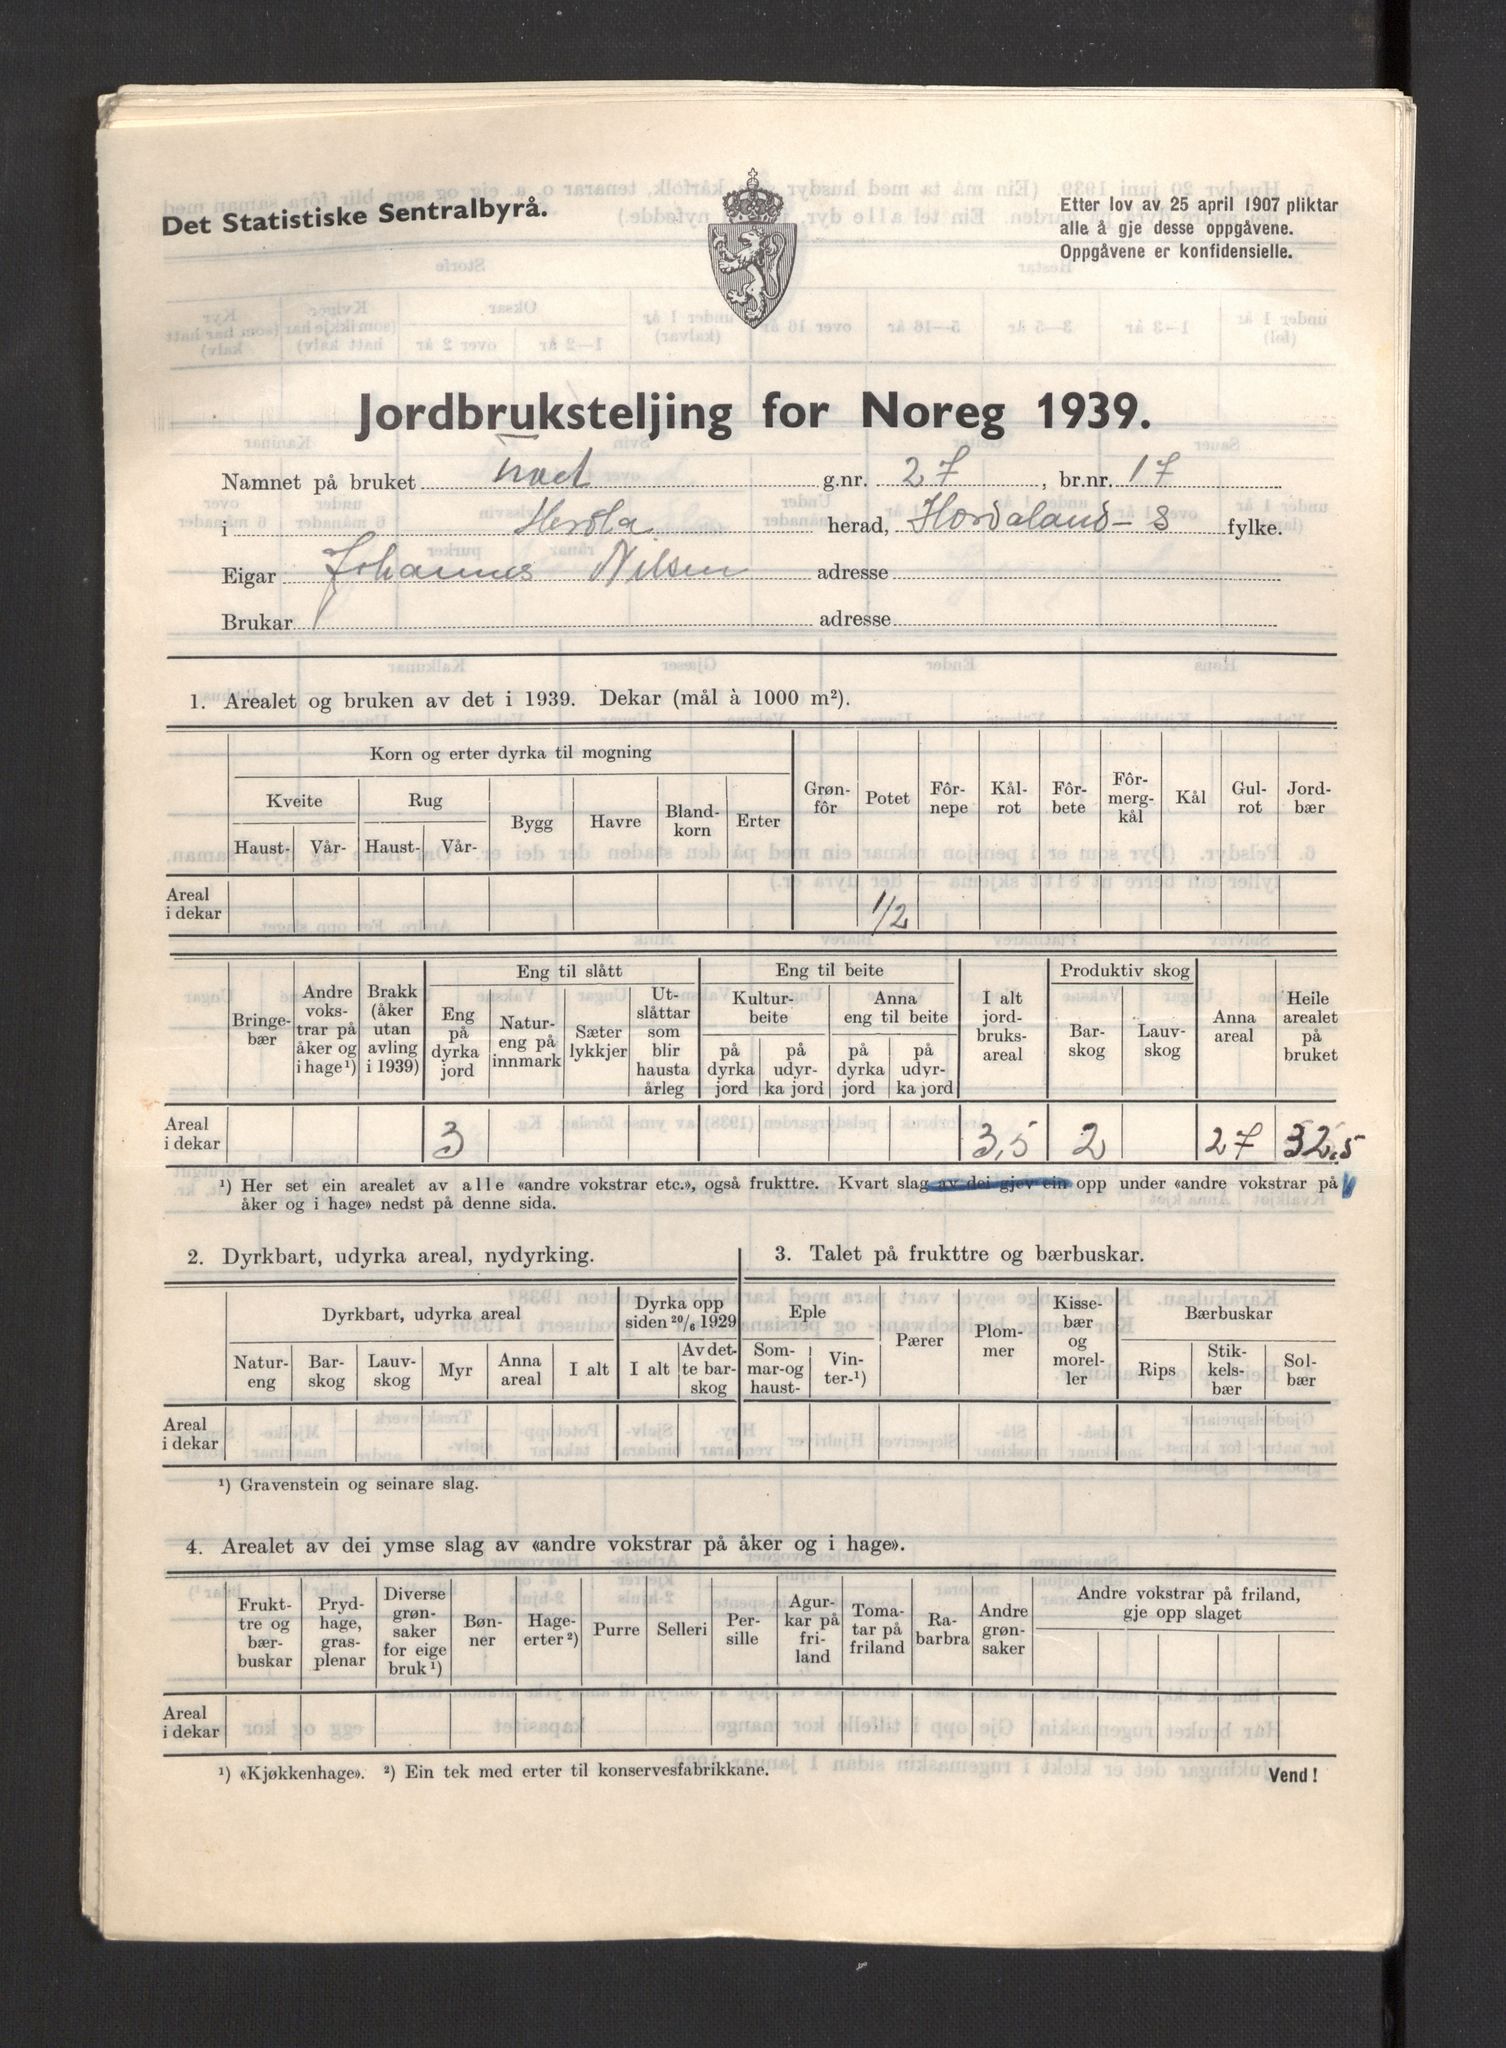 Det Statistiske Sentralbyrå.
Etter lov av 25 april 1907 pliktar
alle å gje desse oppgåvene.
Oppgåvene er konfidensielle.
Jordbruksteljing for Noreg 1939.
Namnet på bruket g.nr. 27, br.nr. 17
i Herdla herad, Hordaland-s fylke.
Eigar Johannes Nilsen adresse
Brukar adresse
1. Arealet og bruken av det i 1939. Dekar (mål à 1000 m²).
Korn og erter dyrka til mogning
Kveite Rug Bygg Havre Blandkorn Erter Grønfôr Potet Fôrnepe Kålrot Fôrbete Fôrmergkål Kål Gulrot Jordbær
Haust- Vår- Haust- Vår-
Areal
i dekar 1/2
Eng til slått Eng til beite Produktiv skog
Bringebær Andre vokstrar på åker og i hage¹) Brakk (åker utan avling i 1939) Eng på dyrka jord Natureng på innmark Sæterlykkjer Utslåttar som blir hausta årleg Kulturbeite Anna eng til beite I alt jordbruksareal Barskog Lauvskog Anna areal Heile arealet på bruket
på dyrka jord på udyrka jord på dyrka jord på udyrka jord
Areal
i dekar 3 3,5 2 27 32,5
¹) Her set ein arealet av alle «andre vokstrar etc.», også frukttre. Kvart slag av dei gjev ein opp under «andre vokstrar på
åker og i hage» nedst på denne sida.
2. Dyrkbart, udyrka areal, nydyrking.
3. Talet på frukttre og bærbuskar.
Dyrkbart, udyrka areal Dyrka opp siden 20/6 1929 Eple Pærer Plommer Kissebær og moreller Bærbuskar
Natureng Barskog Lauvskog Myr Anna areal I alt I alt Av dette barskog Sommar- og haust- Vinter-¹) Rips Stikkelsbær Solbær
Areal
i dekar
¹) Gravenstein og seinare slag.
4. Arealet av dei ymse slag av «andre vokstrar på åker og i hage».
Frukttre og bærbuskar Prydhage, grasplenar Diverse grønsaker for eige bruk¹) Bønner Hageerter²) Purre Selleri Persille Agurkar på friland Tomatar på friland Rabarbra Andre grønsaker Andre vokstrar på friland, gje opp slaget
Areal
i dekar
¹) «Kjøkkenhage». ²) Ein tek med erter til konservesfabrikkane.
Vend!